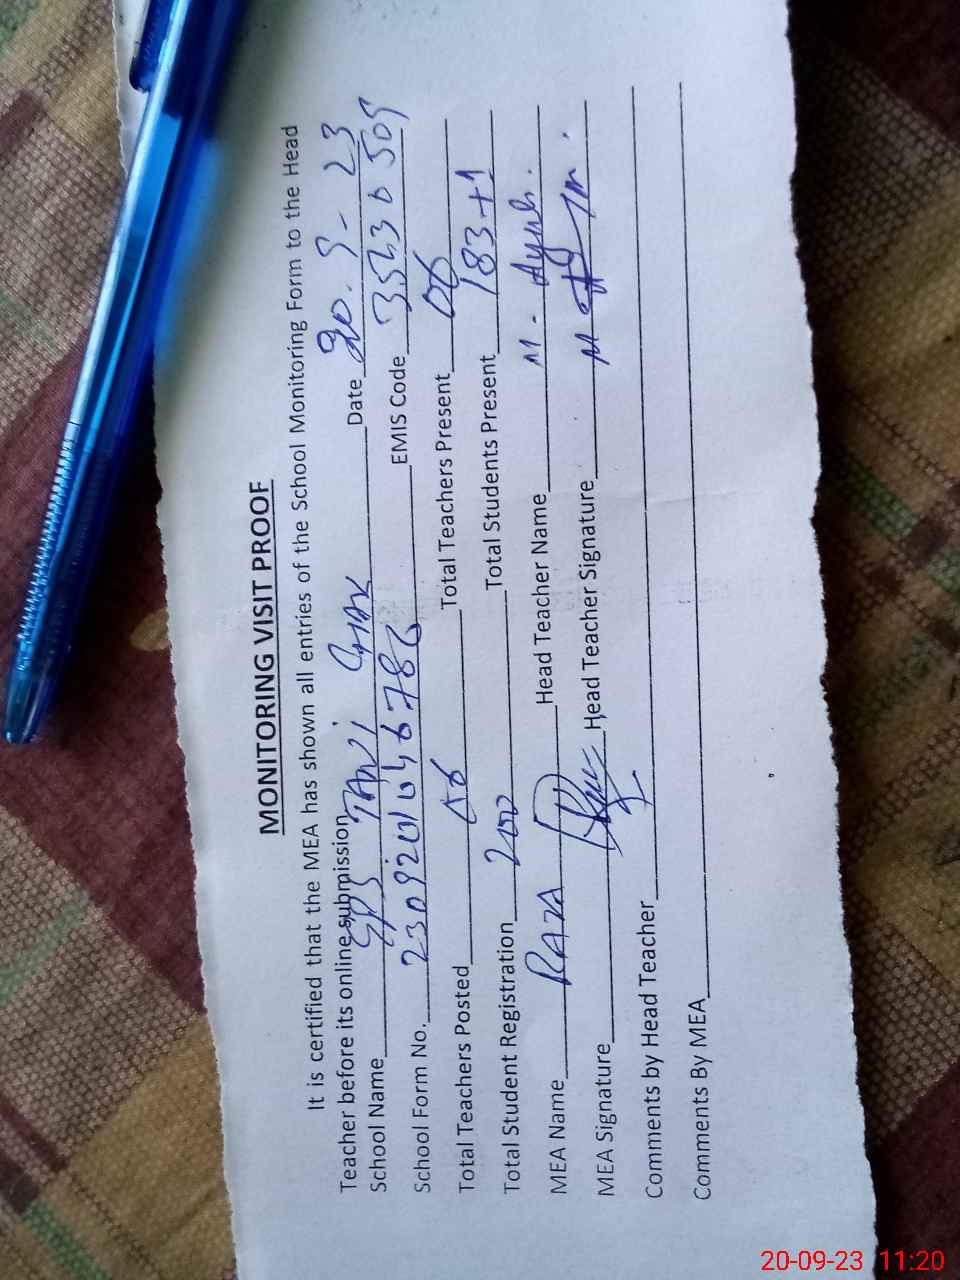 MONITORING VISIT PROOF
It is certified that the MEA has shown all entries of the School Monitoring Form to the Head
Teacher before its online submission.
School Name GPS Date 20.9-23
School Form No. EMIS Code
Total Teachers Posted 06 Total Teachers Present 06
Total Student Registration 200 Total Students Present 183+1
MEA Name RAZA Head Teacher Name M. Ayub.
MEA Signature Head Teacher Signature
Comments by Head Teacher
Comments By MEA
20-09-23 11:20